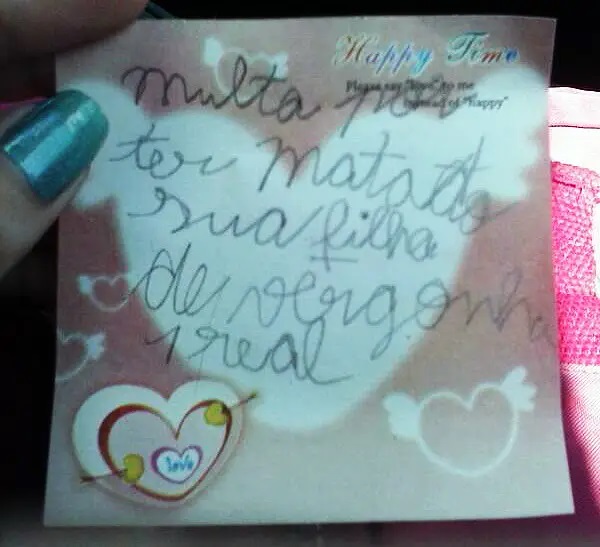 Happy Time
Please say "love" to me
instead of "happy"
multa por
ter matado
sua filha
de vergonha
1 real
love